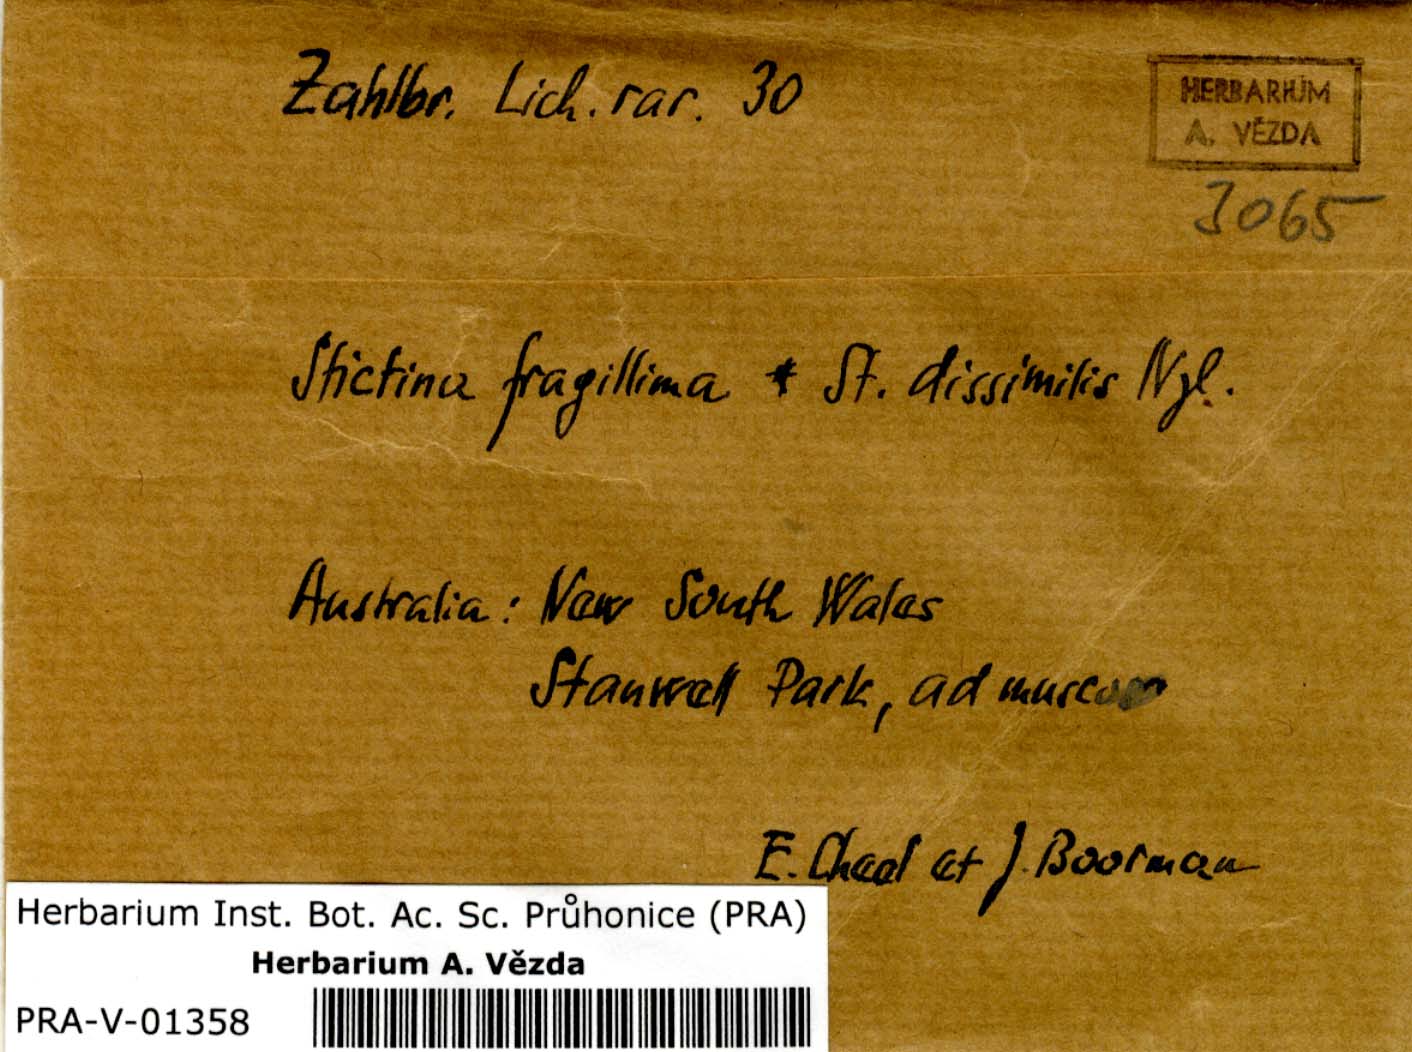 Zahlbr. Lich. rar. 30
HERBARIUM
A. VĚZDA
3065
Stictina fragillima * St. dissimilis Nyl.
Australia: New South Wales
Stanwell Park, ad
E. Cheel et J. Boorman
Herbarium Inst. Bot. Ac. Sc. Průhonice (PRA)
Herbarium A. Vězda
PRA-V-01358